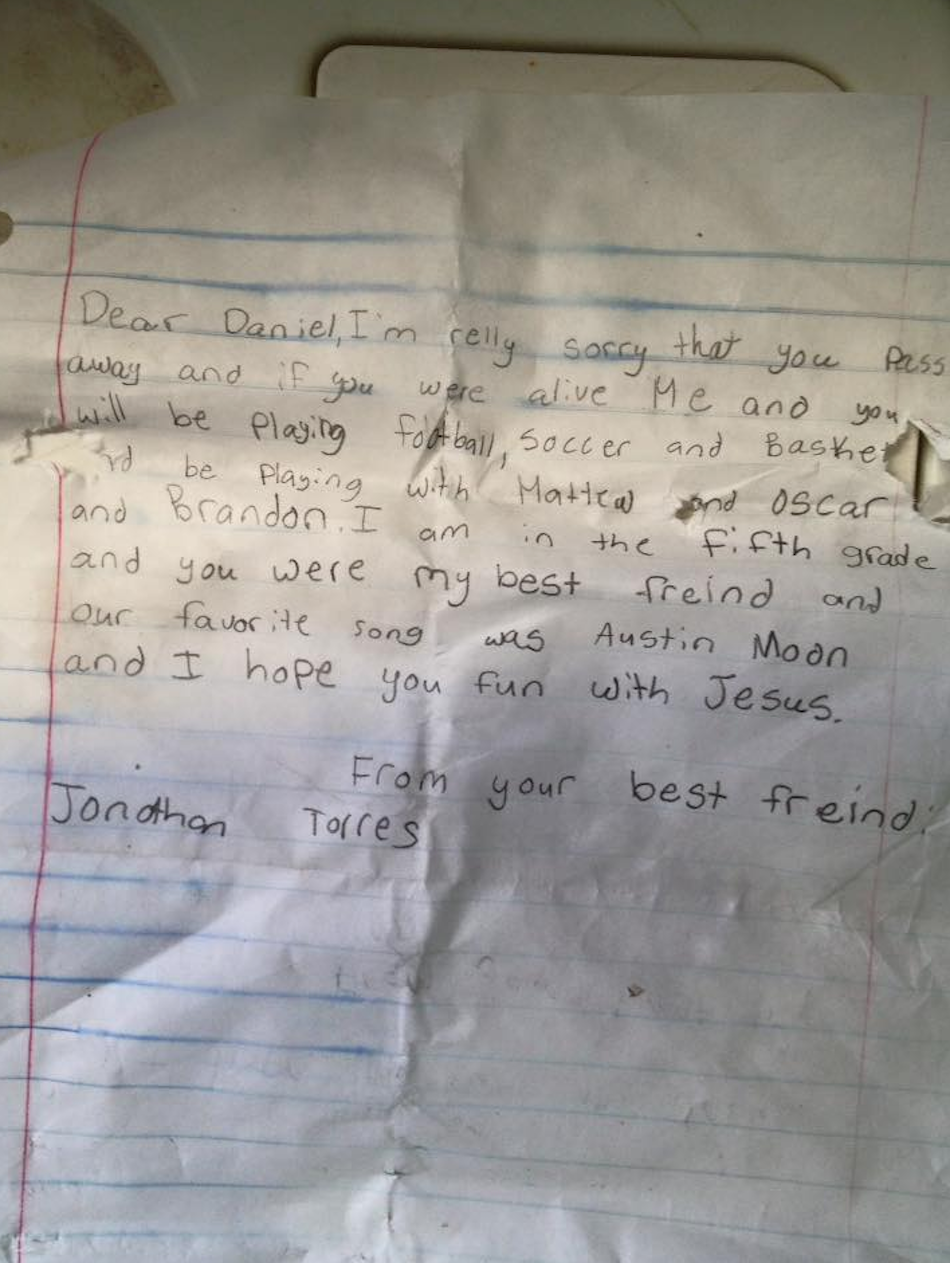 Dear Daniel, I'm relly sorry that you Pass
away and if you were alive Me and you
will be Playing football, soccer and Basket
be Playing with Mattew and Oscar
and Brandon. I am in the fifth grade
and you were my best freind and
our favorite song was Austin Moon
and I hope you fun with Jesus.
From your best freind.
Jonathan Torres